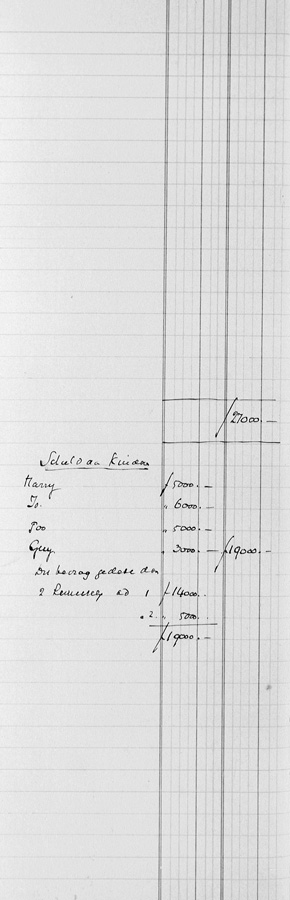 ƒ 27000.—
Schuld aan Kinderen
Harry ƒ 5000.—
Jo. „ 6000.—
Poo „ 5000.—
Guy „ 3000.— ƒ 19000.—
Dit bedrag gedekt door
2 ad 1 ƒ 14000.
„ 2. „ 5000.
ƒ 19000.—